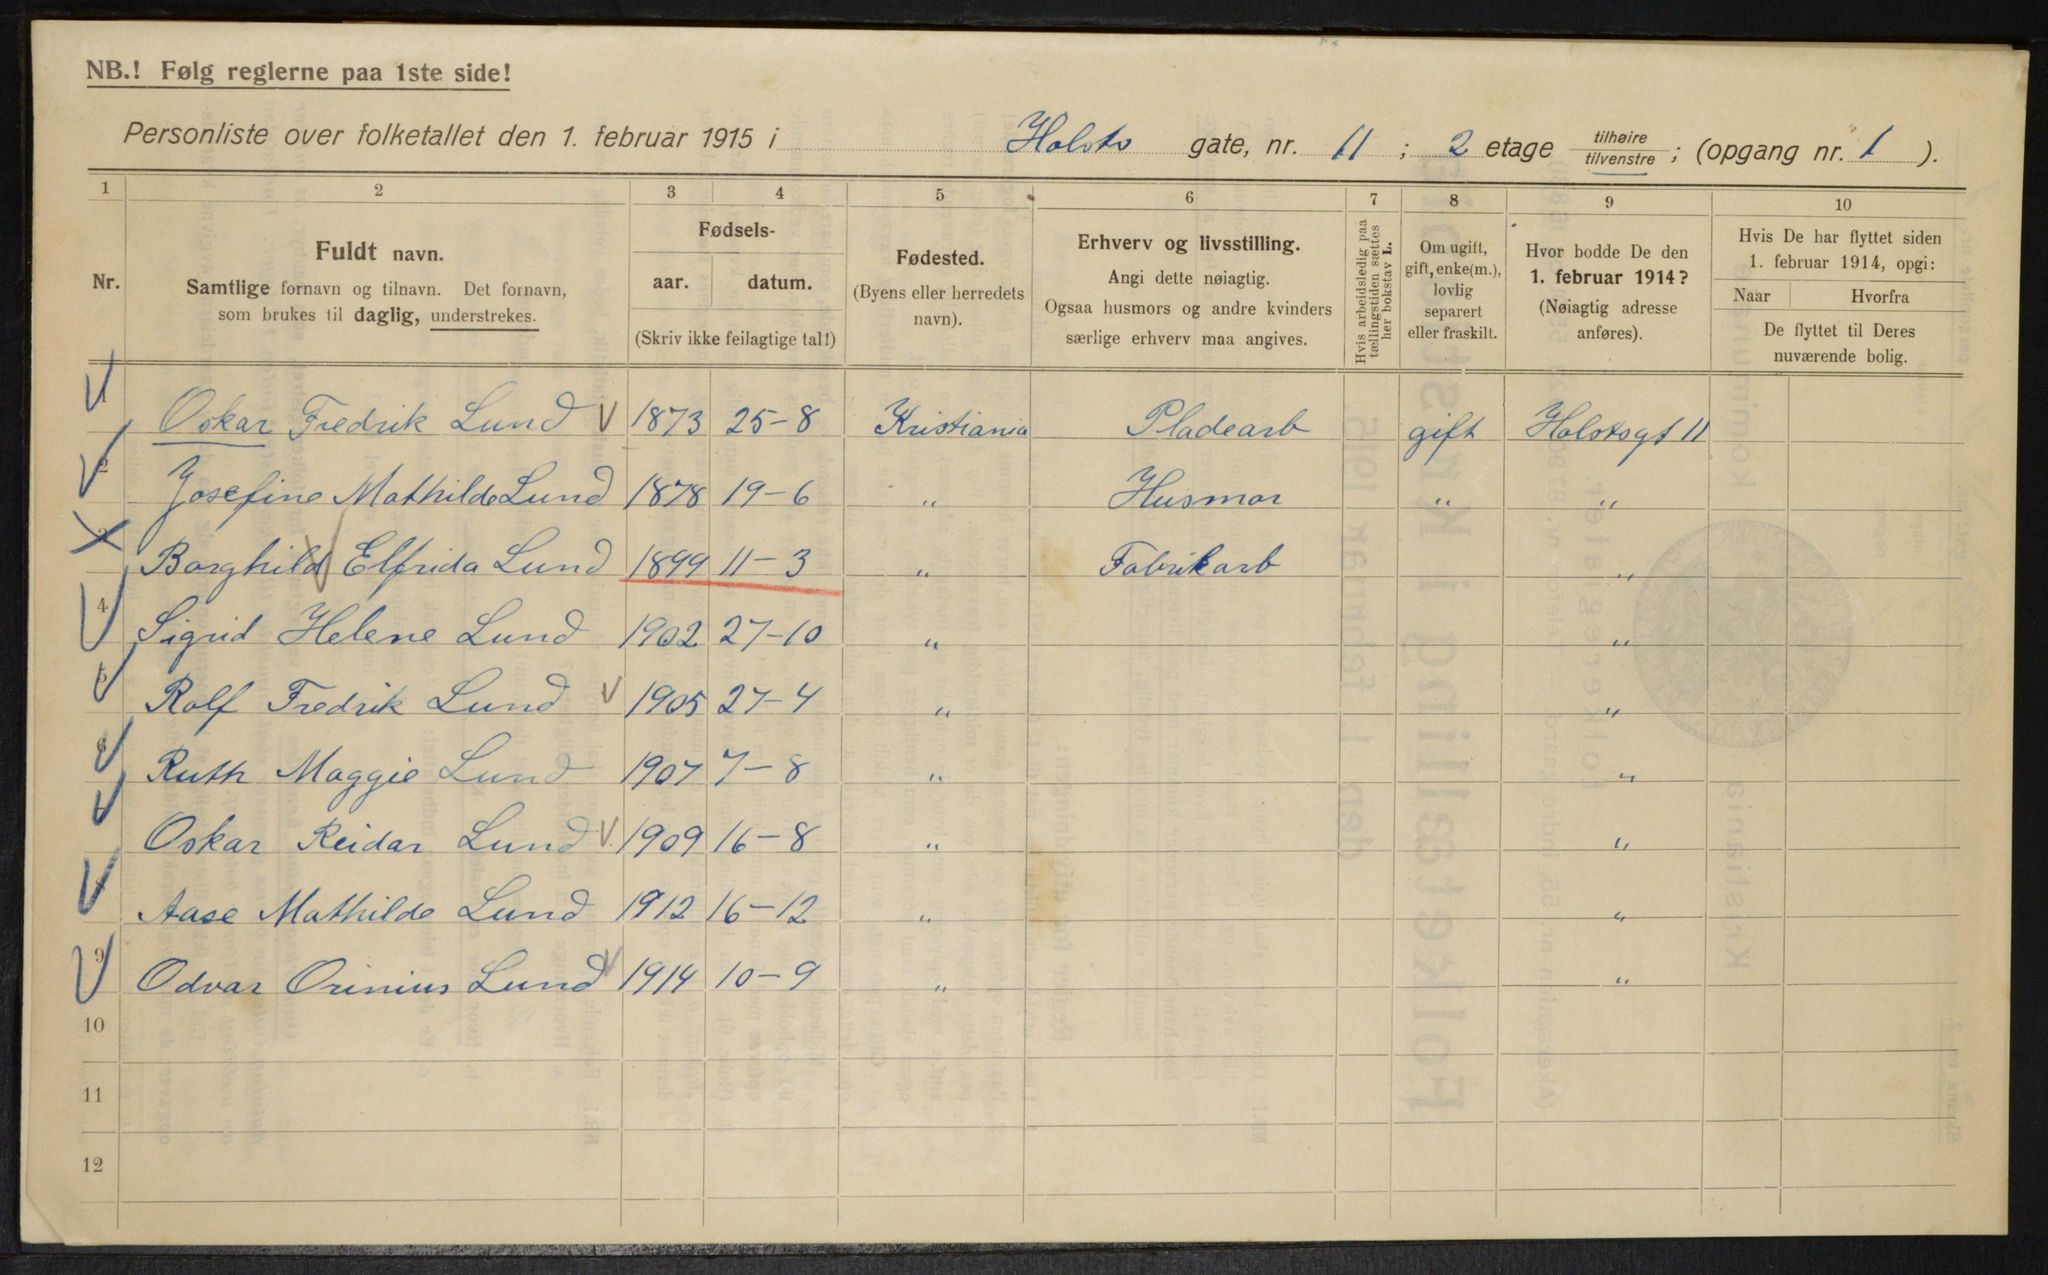 NB.! Følg reglerne paa 1ste side!
Personliste over folketallet den 1. februar 1915 i Holsts gate, nr. 11 ; 2 etage tilhøire / tilvenstre ; (opgang nr. 1 ).
1 2 3 4 5 6 7 8 9 10
Nr.
Fuldt navn.
Samtlige fornavn og tilnavn. Det fornavn,
som brukes til daglig, understrekes.
Fødsels-
aar. datum.
(Skriv ikke feilagtige tal!)
Fødested.
(Byens eller herredets
navn).
Erhverv og livsstilling.
Angi dette nøiagtig.
Ogsaa husmors og andre kvinders
særlige erhverv maa angives.
Hvis arbeidsledig paa
tællingstiden sættes
her bokstav L.
Om ugift,
gift, enke(m.),
lovlig
separert
eller fraskilt.
Hvor bodde De den
1. februar 1914?
(Nøiagtig adresse
anføres).
Hvis De har flyttet siden
1. februar 1914, opgi:
Naar Hvorfra
De flyttet til Deres
nuværende bolig.
1 Oskar Fredrik Lund 1873 25-8 Kristiania Pladearb gift Holstsgt 11
2 Josefine Mathilde Lund 1878 19-6 " Husmor " "
3 Borghild Elfrida Lund 1899 11-3 " Fabrikarb "
4 Sigrid Helene Lund 1902 27-10 " "
5 Rolf Fredrik Lund 1905 27-4 " "
6 Ruth Maggie Lund 1907 7-8 " "
7 Oskar Reidar Lund 1909 16-8 " "
8 Aase Mathilde Lund 1912 16-12 " "
9 Odvar Orinius Lund 1914 10-9 " "
10
11
12